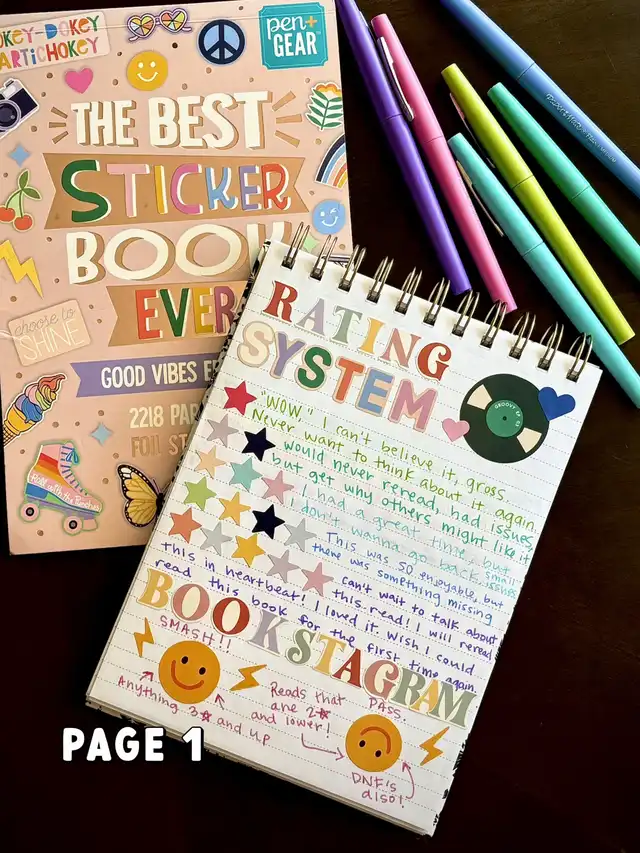 OKEY-DOKEY
ARTICHOKEY
pen+
GEAR™
THE BEST
STICKER
BOOK
EVER
choose to
SHINE
GOOD VIBES
2218
FOIL
Roll with the Punches
RATING
SYSTEM
GROOVY
"WOW." I can't believe it, gross.
Never want to think about it again.
would never reread, had issues,
but get why others might like it
I had a great time, but small
I don't wanna go back, issues
This was SO enjoyable, but
there was something missing
can't wait to talk about
this read! I will reread
this in heartbeat! I loved it. Wish I could
read this book for the first time again.
BOOKSTAGRAM
SMASH!!
Anything 3★ and up
Reads that
are 2★
and lower!
PASS.
DNF's
also!
PAGE 1